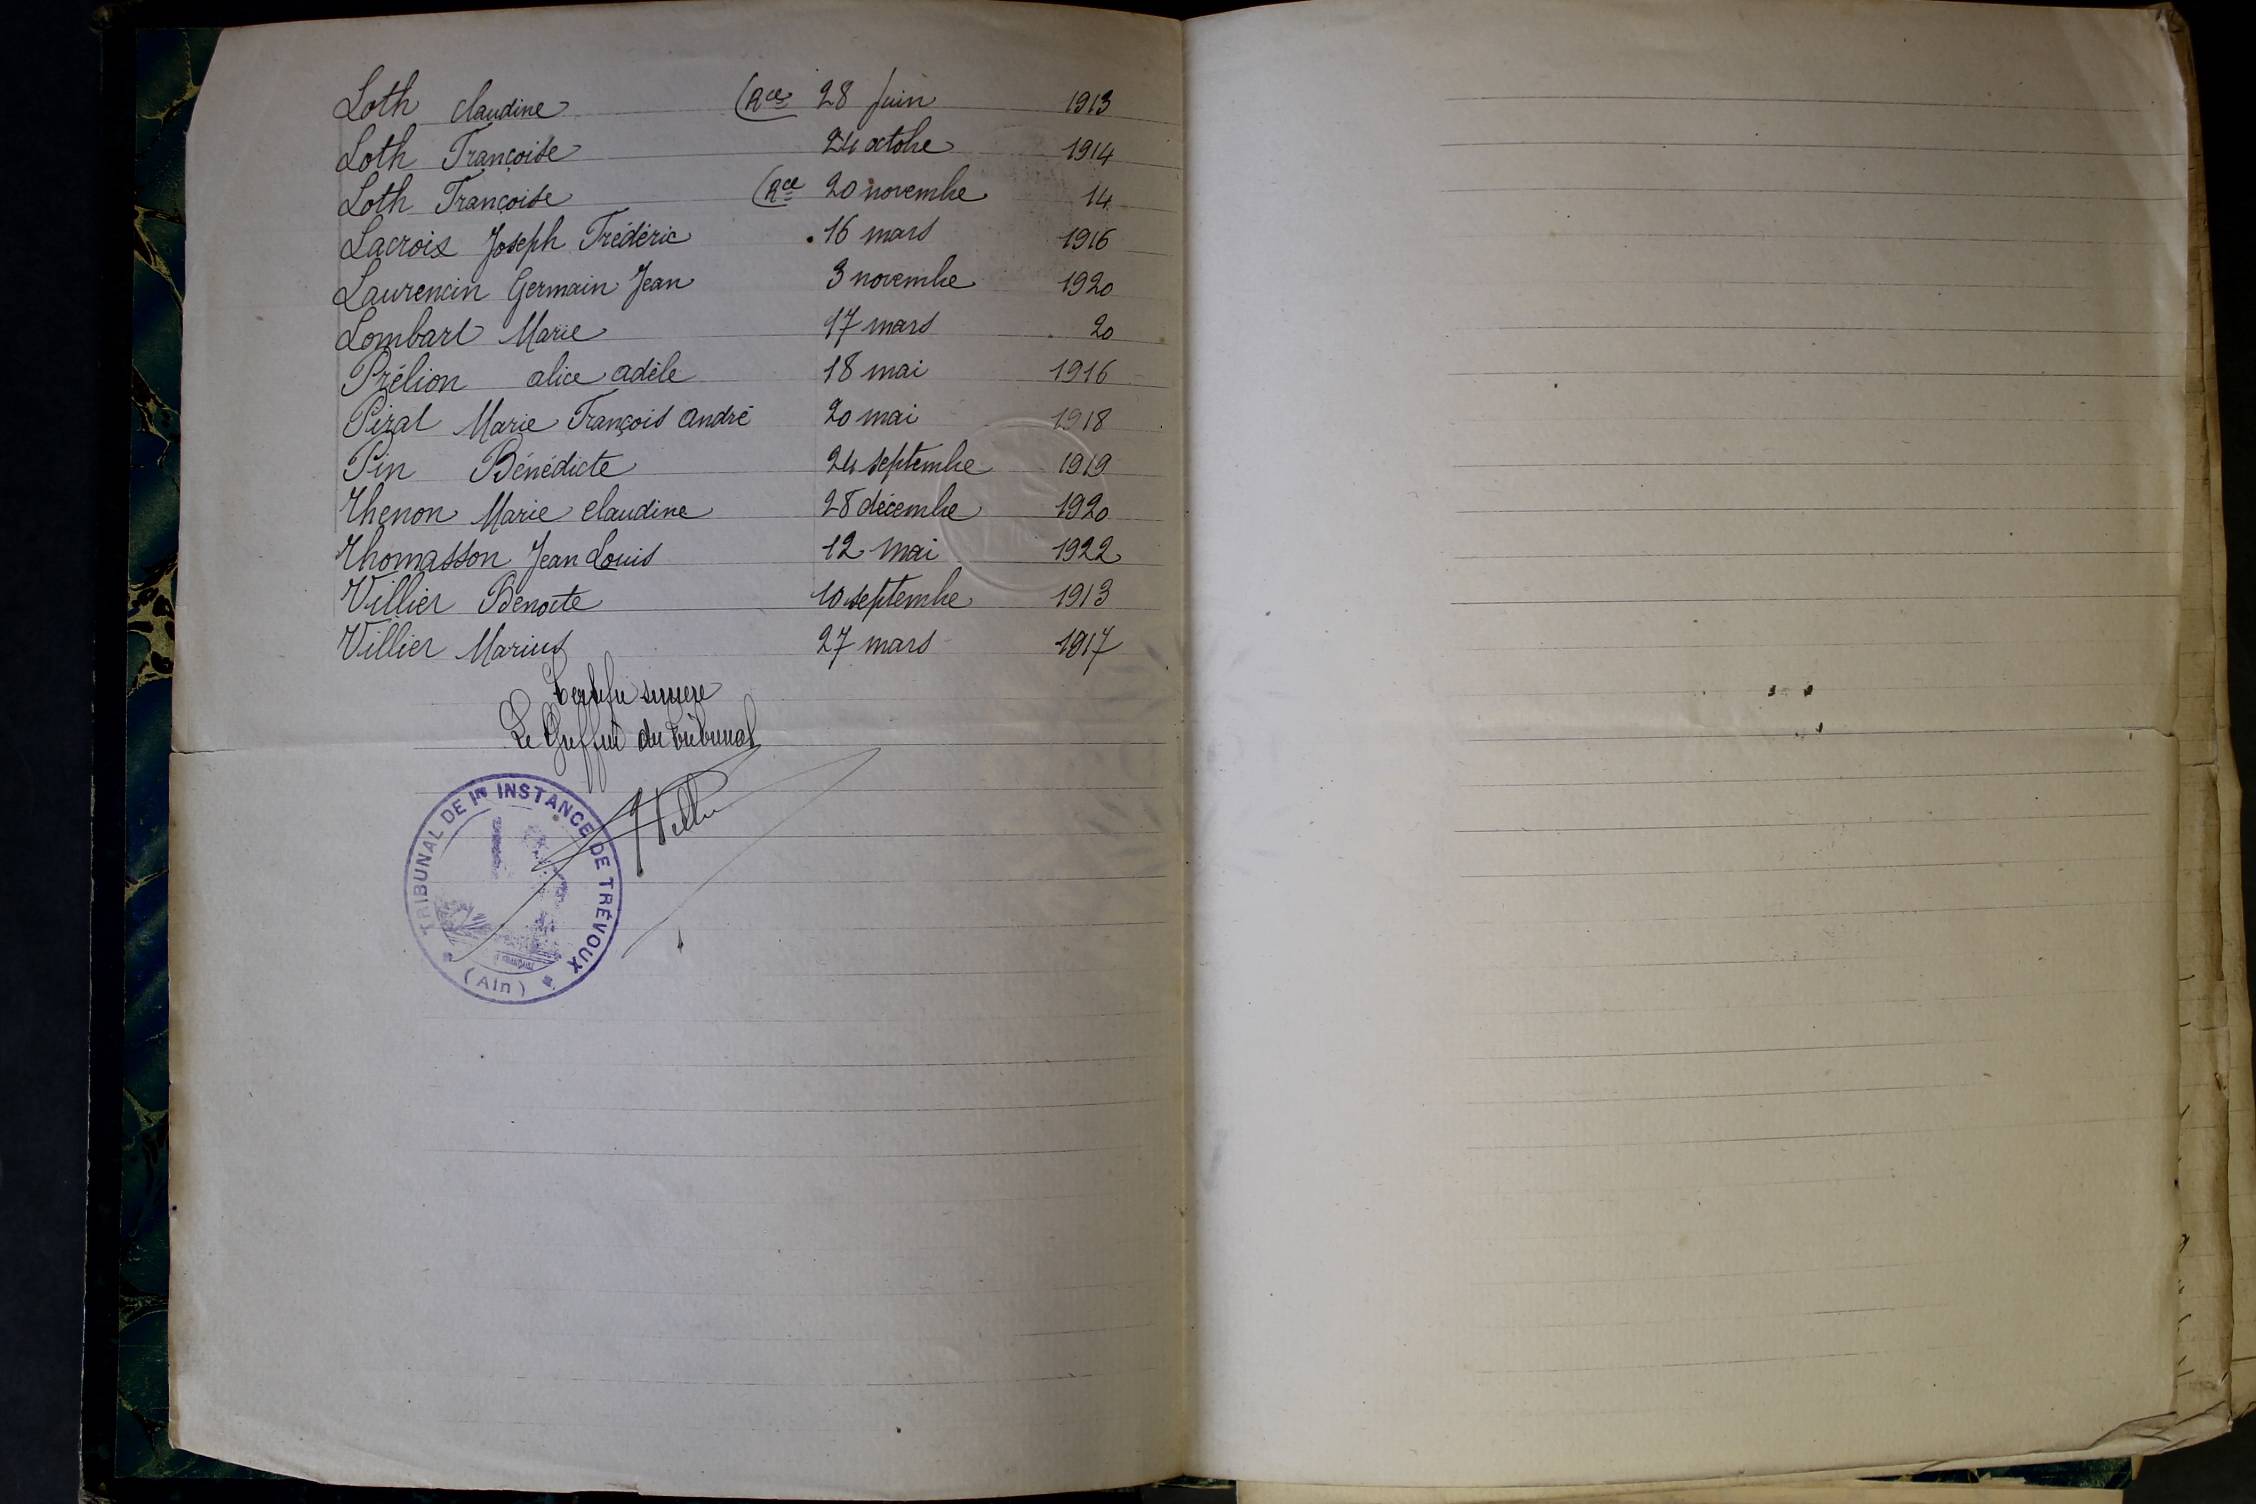 Loth Claudine (Rce 28 Juin 1913
Loth Françoise 24 octobre 1914
Loth Françoise (Rce 20 novembre 14
Lacroix Joseph Frédéric 16 mars 1916
Laurencin Germain Jean 3 novembre 1920
Lombart Marie 17 mars 20
Prélion alice adèle 18 mai 1916
Pizat Marie François André 20 mai 1918
Pin Bénédicte 24 septembre 1919
Thenon Marie Claudine 28 décembre 1920
Thomasson Jean Louis 12 mai 1922
Villier Benoîte 10 septembre 1913
Villier Marius 27 mars 1917
Certifié sincère
Le Greffier du Tribunal
TRIBUNAL DE 1re INSTANCE DE TRÉVOUX
(Ain)